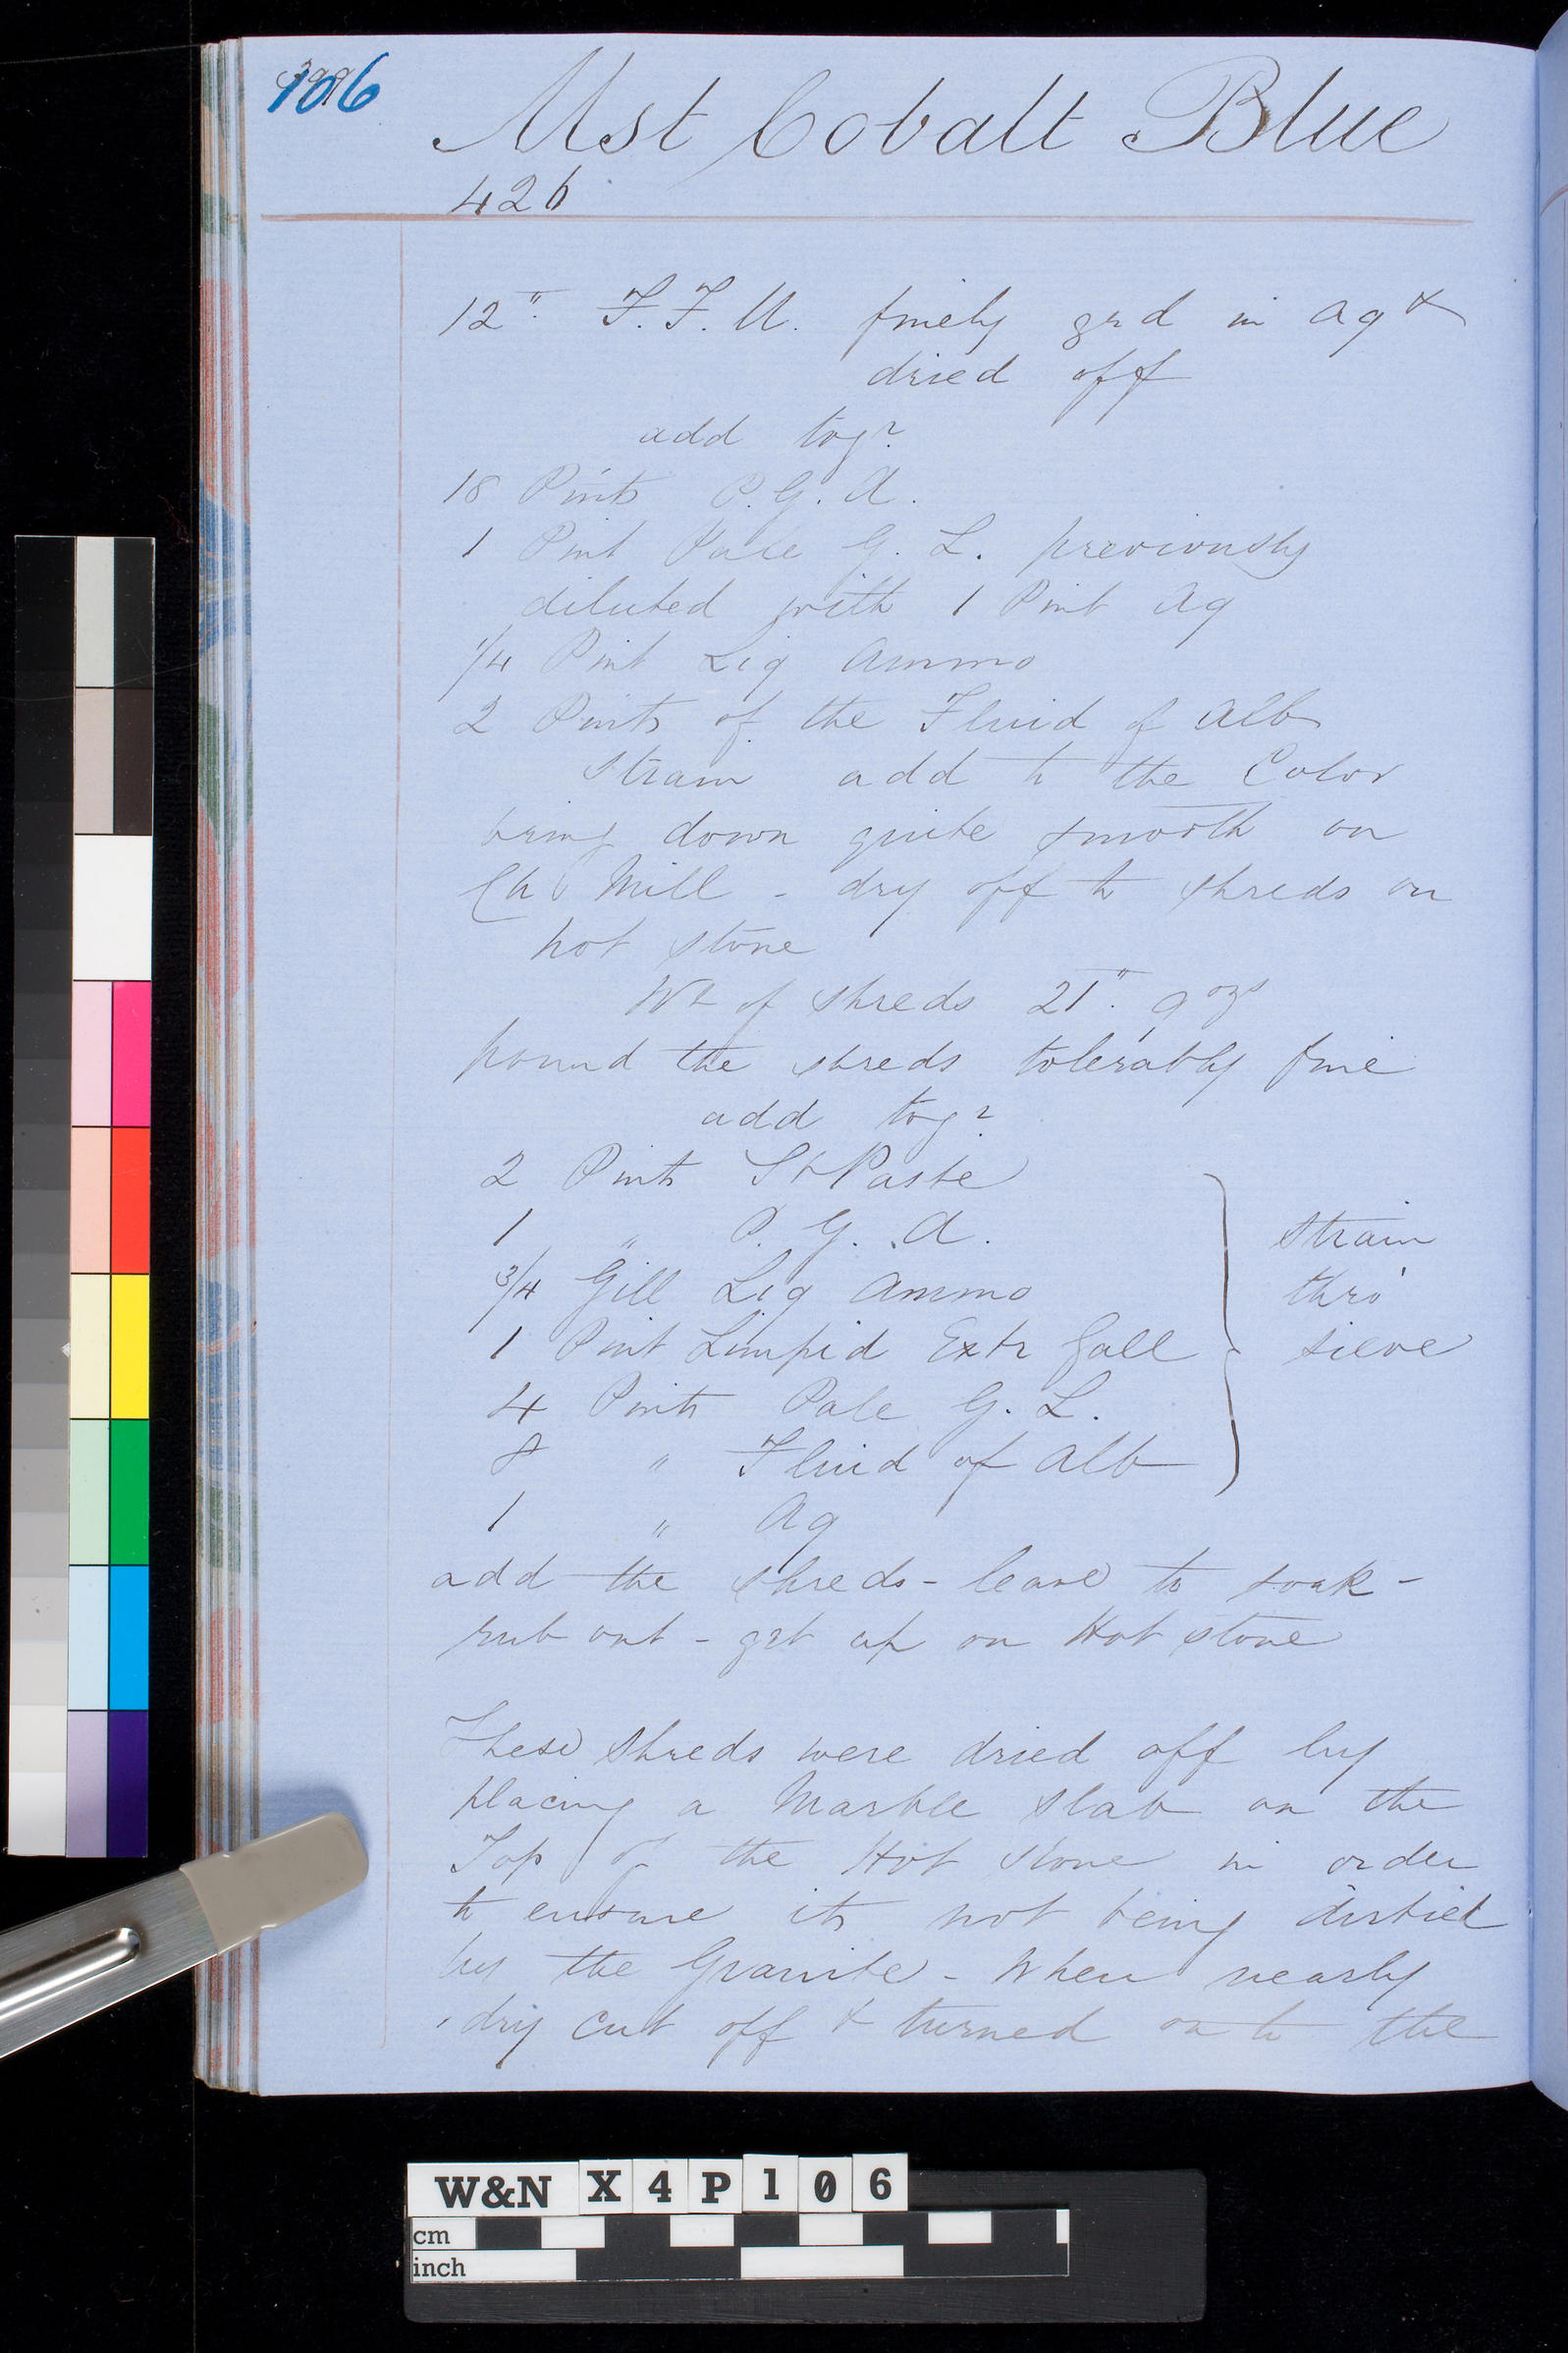 106
Mst Cobalt Blue
426
12". F.F.U. finely grd in aq &
dried off
add togr.
18 Pints P.G.A.
1 Pint Pale G. L. previously
diluted with 1 Pint Aq
1/4 Pint Liq Ammo
2 Pints of the Fluid of Alb
Strain add to the Color
bring down quite smooth on
Mill - dry off to shreds on
hot stone
Wt of shreds 21". 9 ozs
pound the shreds tolerably fine
add togr.
2 Pints St Paste
1 " P. G. A.
3/4 Gill Liq Ammo
1 Pint Limpid Extr Gall
4 Pints Pale G. L.
8 " Fluid of Alb
1 " Aq
strain
thro'
sieve
add the shreds - leave to soak -
rub out - get up on Hot stone
These shreds were dried off by
placing a Marble slab on the
Top of the Hot Stone in order
to ensure its not being dirtied
by the Granite - When nearly
dry cut off & turned on to the
W&N X4P106
cm
inch